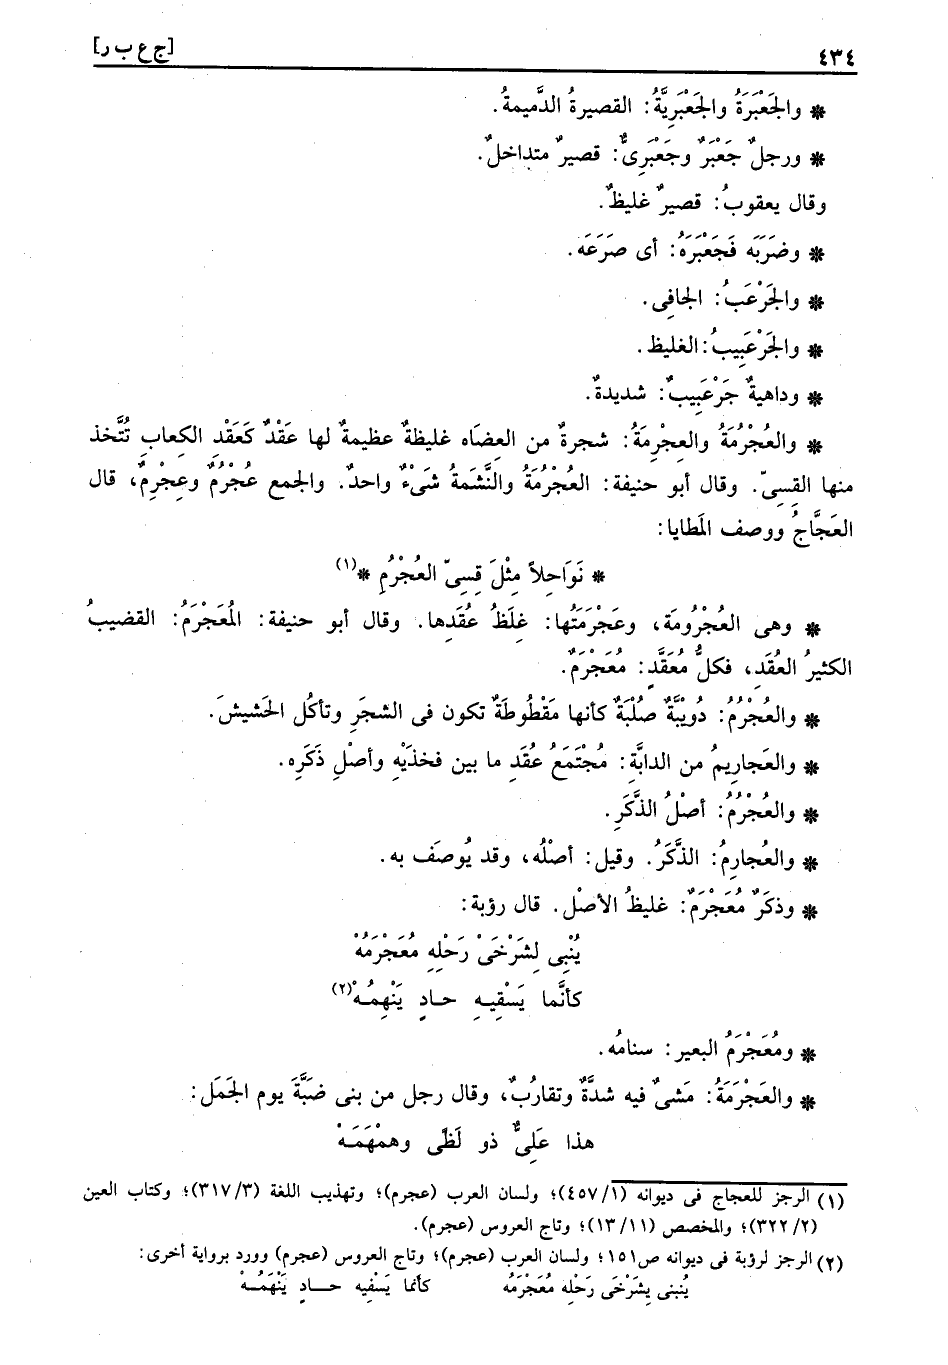 ٤٣٤ [ج ع ب ر]
* والجَعْبَرَةُ والجَعْبَرِيَّةُ: القصيرةُ الدَّميمةُ.
* ورجلٌ جَعْبَرٌ وجَعْبَرِىٌّ: قصيرٌ متداخلٌ.
وقال يعقوبُ: قصيرٌ غليظٌ.
* وضَرَبَه فَجَعْبَرَهُ: أى صَرَعَه.
* والجَرْعَبُ: الجافِى.
* والجَرْعَبِيبُ: الغليظ.
* وداهيةٌ جَرْعَبِيبٌ: شديدةٌ.
* والعُجْرُمَةُ والعِجْرِمَةُ: شجرةٌ من العِضَاه غليظةٌ عظيمةٌ لها عَقْدٌ كَعَقْدِ الكعابِ تُتَّخذ
منها القِسِىّ. وقال أبو حنيفة: العُجْرُمَةُ والنَّشَمةُ شَىْءٌ واحدٌ. والجمع عُجْرُمٌ وعِجْرِمٌ، قال
العَجَّاجُ ووصف المَطايا:
* نَوَاحِلاً مِثْلَ قِسِىِّ العُجْرُمِ *(١)
* وهى العُجْرُومَة، وعَجْرَمَتُها: غِلَظُ عُقَدِها. وقال أبو حنيفة: المُعَجْرَمُ: القضيبُ
الكثيرُ العُقَدِ، فكلُّ مُعَقَّدٍ: مُعَجْرَمٌ.
* والعُجْرُمُ: دُوَيْبَّةٌ صُلْبَةٌ كأنها مَقْطُوطَةٌ تكون فى الشجَرِ وتأكُل الحَشيشَ.
* والعَجاريمُ من الدابَّةِ: مُجْتَمَعُ عُقَدِ ما بين فخذَيْهِ وأصْلِ ذَكَرِه.
* والعُجْرُمُ: أصْلُ الذَّكَرِ.
* والعُجارِمُ: الذَّكَرُ. وقيل: أصْلُه، وقد يُوصَف به.
* وذكَرٌ مُعَجْرَمٌ: غليظُ الأصْل. قال رؤبة:
يُنْبِى لِشَرْخَىْ رَحْلِهِ مُعَجْرَمُهْ
كأنَّما يَسْقِيهِ حادٍ يَنْهِمُهْ(٢)
* ومُعَجْرَمُ البعير: سنامُه.
* والعَجْرَمَةُ: مَشىٌ فيه شدَّةٌ وتقارُبٌ، وقال رجل من بنى ضبَّةَ يوم الجَمَل:
هذا عَلِىٌّ ذو لَظًى وهمْهَمَهْ
(١) الرجز للعجاج فى ديوانه (٤٥٧/١)؛ ولسان العرب (عجرم)؛ وتهذيب اللغة (٣١٧/٣)؛ وكتاب العين
(٣٢٢/٢)؛ والمخصص (١٣/١١)؛ وتاج العروس (عجرم).
(٢) الرجز لرؤبة فى ديوانه ص١٥١؛ ولسان العرب (عجرم)؛ وتاج العروس (عجرم) وورد برواية أخرى:
يُنبنى بِشَرْخَى رَحْلِه مُعَجْرَمُه كأنما يَسْفِيه حادٍ يَنْهَمُهْ